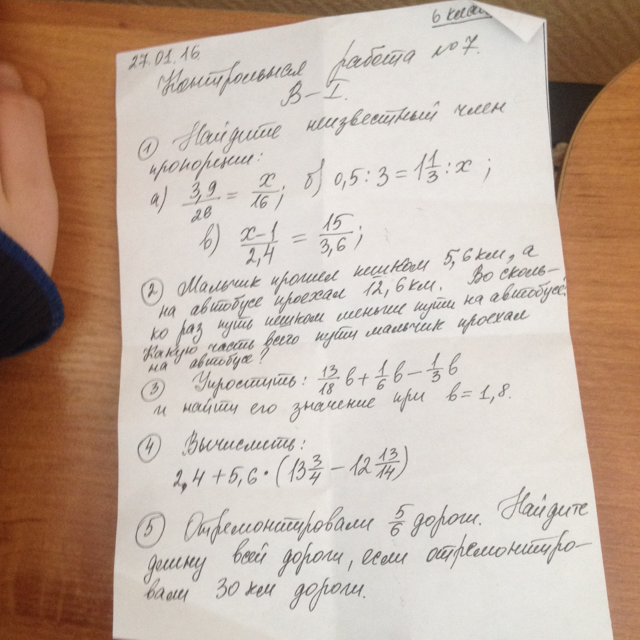 6 класс
27.01.16.
Контрольная работа №7.
В-I.
① Найдите неизвестный член
пропорции:
а) 3,9/26 = x/16; б) 0,5 : 3 = 1 1/3 : x ;
в) x-1/2,4 = 15/3,6;
② Мальчик прошел пешком 5,6 км, а
на автобусе проехал 12,6 км. Во сколь-
ко раз путь пешком меньше пути на автобусе?
Какую часть всего пути мальчик проехал
на автобусе?
③ Упростить: 13/18 b + 1/6 b - 1/3 b
и найти его значение при b = 1,8.
④ Вычислить:
2,4 + 5,6 • (13 3/4 - 12 13/14)
⑤ Отремонтировали 5/6 дороги. Найдите
длину всей дороги, если отремонтиро-
вали 30 км дороги.